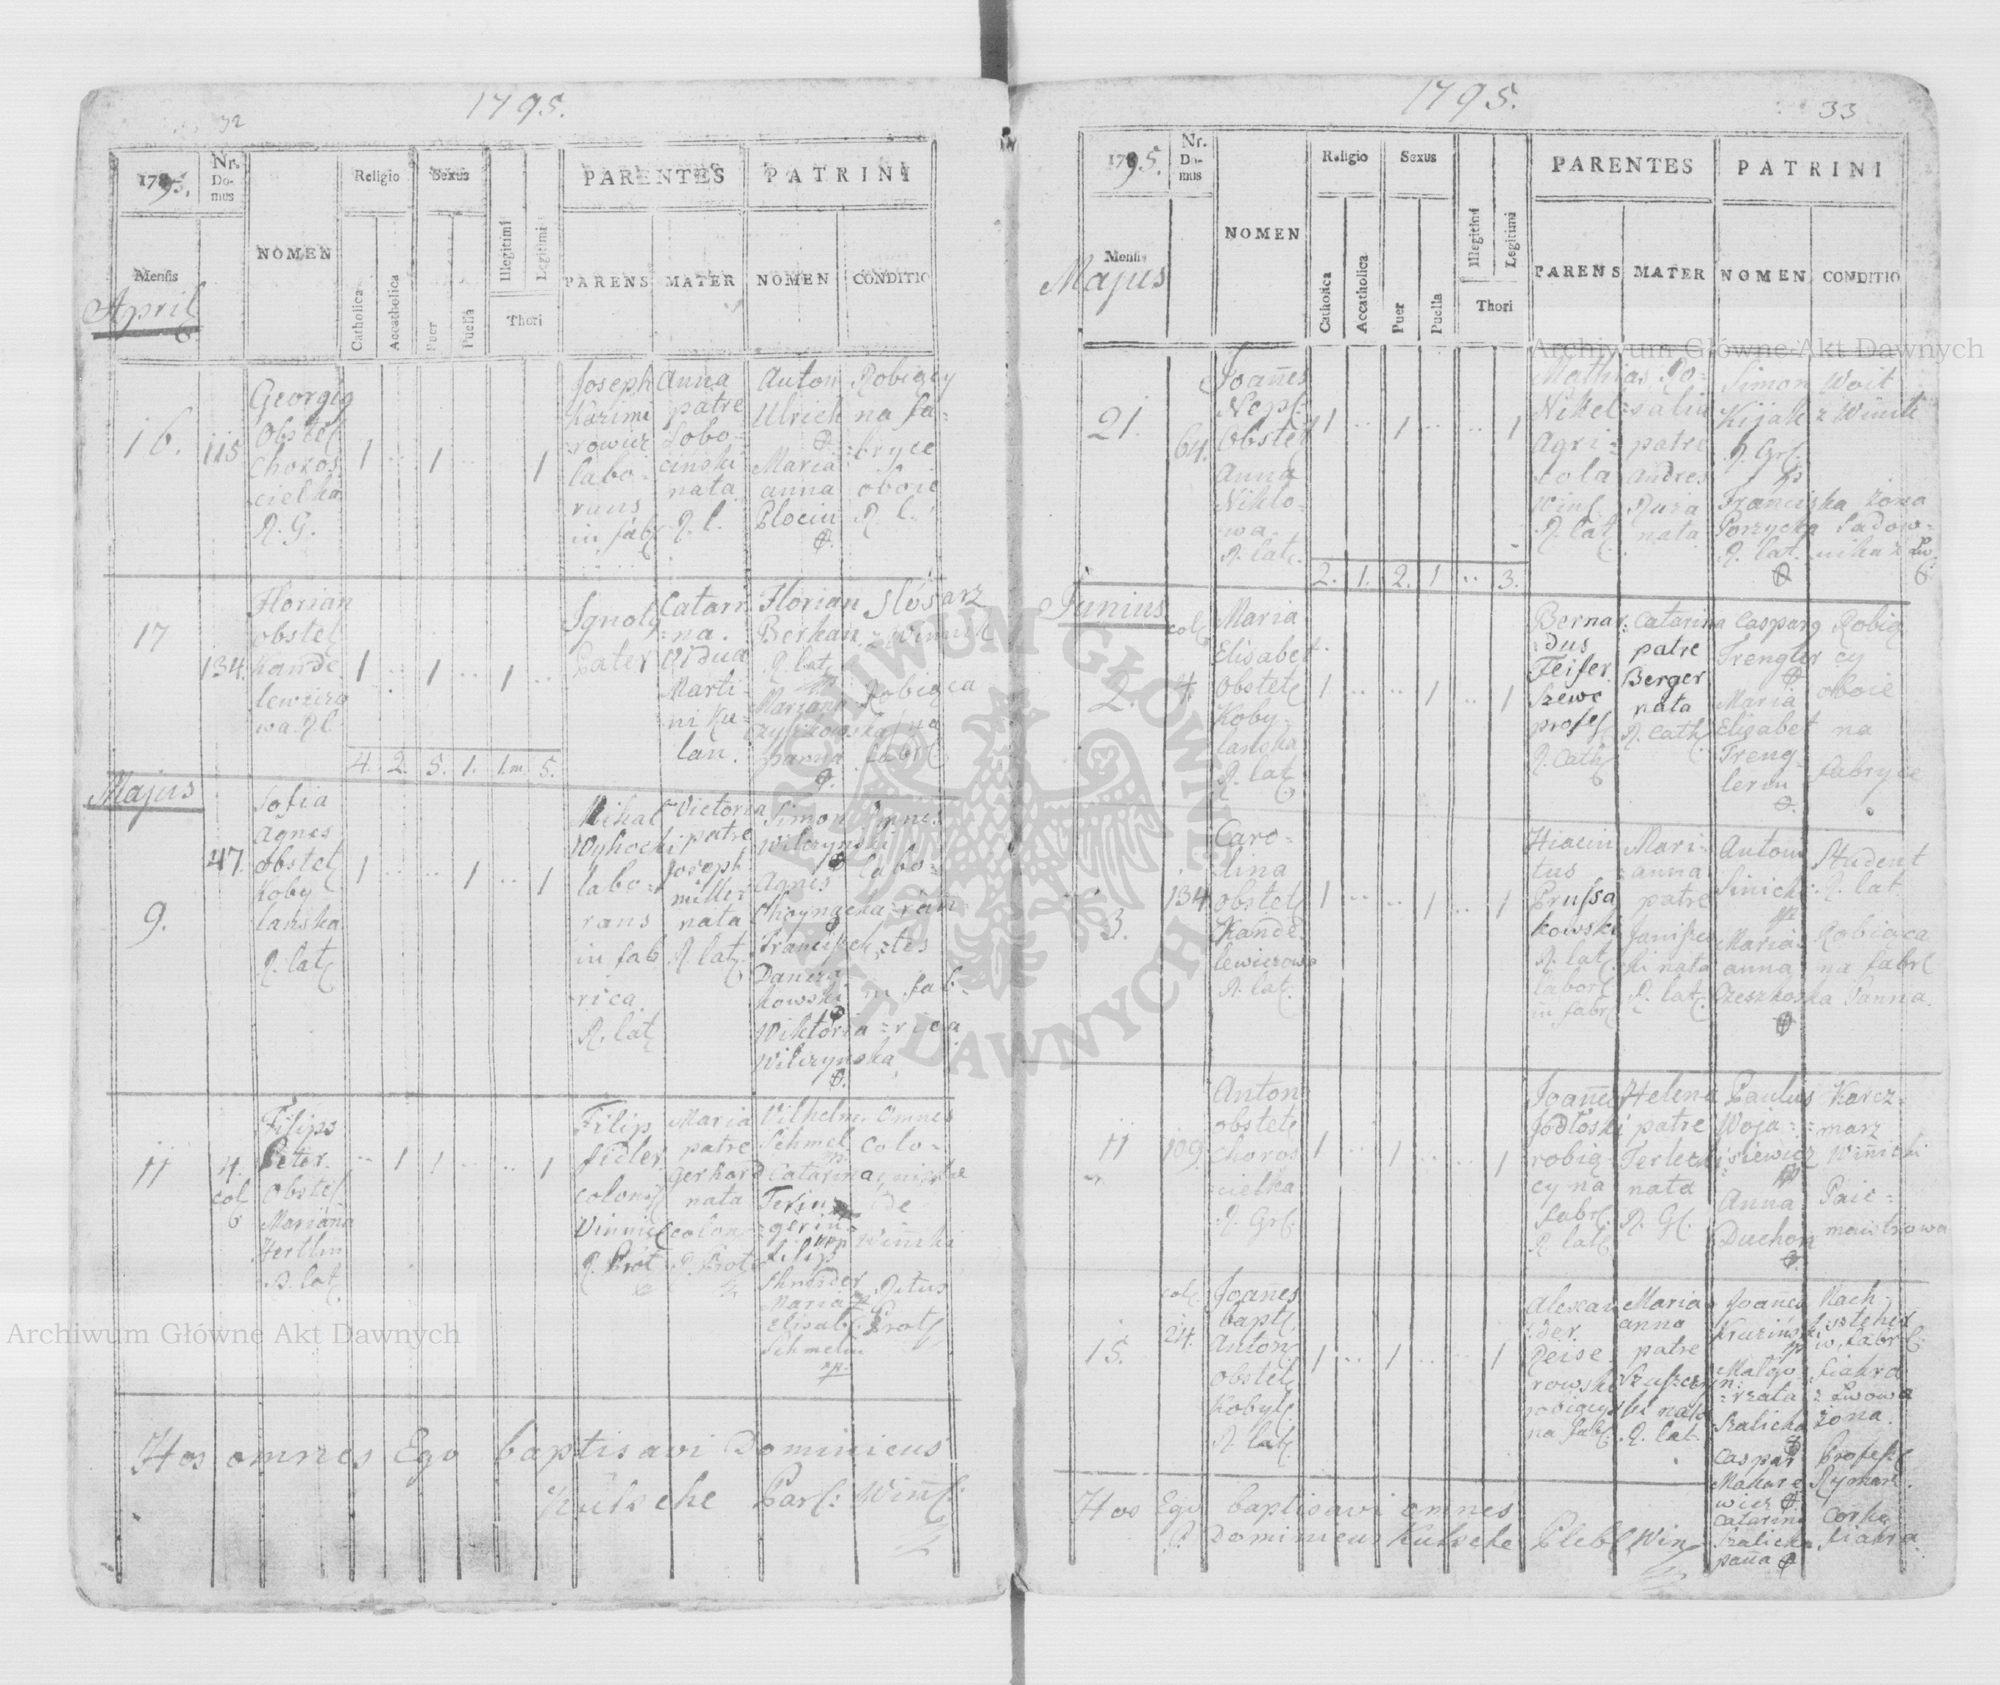 1795.
32
1795.
Nr.
Do-
mus
NOMEN
Religio
Sexus
PARENTES
PATRINI
Mensis
April
Catholica
Accatholica
Puer
Puella
Illegitimi
Legitimi
Thori
PARENS
MATER
NOMEN
CONDITIO
16.
115
Georgig
Obstet
Choros
cielka
R. G.
1 .. 1 .. .. 1
Joseph
Kazimi
rowicz
labo-
rans
in fab
Anna
patre
Sobo-
cinski
nata
R. l.
Anton
Ulrich
Maria
anna
Plocin
Robigcy
na fa-
bryce
oboie
R. l.
17
134.
Florian
obstet
Kande
lewiczo
wa R l.
1 .. 1 .. 1 ..
Ignaty
Pater
Catari
=na.
Vidua
Marti-
ni Ku-
lan.
Florian
Berhan
R. lat
Mariana
panna
Slosarz
z Winnik
Robigca
na
fabr
4. 2. 5. 1. 1.m. 5.
Majus
9.
47.
Sofia
Agnes
obstet
Koby
lanska
R. lat
1 .. .. 1 .. 1
Mihal
Wyhocki
labo-
rans
in fab
rica
R. lat
Victoria
patre
Joseph
miller
nata
R. lat
Simon
Wilczynski
Agnes
Choynacka
Franciszek
Dancz
kowski
Wiktoria
Wilczynska
Omnes
labo-
ran-
tes
in fab-
=rica
11
4.
col
Filips
Peter.
Obstet
Mariana
Hertlin
R. lat
.. 1 1 .. .. 1
Filip
fidler
colony
Vinnic
R. Prot
Maria
patre
Gerhard
nata
colon
R. Prot
Vilhelm
Schmel
Catarina
Ferin
gerin
Filip
Shneider
Maria
Elisab
Schmelin
Omnes
colo-
niste
de
Winnki
Ritus
Prot
Hos omnes Ego baptisavi Dominicus
Kutsche Par: Winn:
1795.
33
1795.
Nr.
Do-
mus
NOMEN
Religio
Sexus
PARENTES
PATRINI
Mensis
Majus
Catholica
Accatholica
Puer
Puella
Illegitimi
Legitimi
Thori
PARENS
MATER
NOMEN
CONDITIO
21.
64.
Joañes
Nep:
Obstet
Anna
Niklo-
wa
R. lat.
1 .. 1 .. .. 1
Mathias
Nikel
Agri-
cola
Win
R. lat
Ro-
salia
patre
Andres
Ruza
nata
Simon
Kijak
R. Gr.
Franciszka
Porzycka
R. lat.
Woit
z Winik
zona
Sadow-
nika z Lw.
2. 1. 2. 1 .. 3.
Junius
2.
col
4.
Maria
Elisabet.
Obstet
Koby-
lanska
R. lat
1 .. .. 1 .. 1
Bernar-
dus
Feifer
Szewc
profes
R. Cath
Catarina
patre
Berger
nata
R. Cath
Casparg
Trengler
Maria
Elisabet
Treng-
lerin
Robig
cy
oboie
na
fabryce
3.
134.
Caro-
lina
obstet
Kande
lewiczowa
R. lat.
1 .. .. 1 .. 1
Hiacin
tus
Prussa
kowski
R. lat.
labor
in fabr
Mari-
=anna
patre
nata
R. lat.
Anton
Sinicki
Maria
anna
Czeszkoska
Student
R. lat
Robigca
na fabr
Panna.
11
109.
Anton
obstet
Choros
cielka
R. Gr:
1 .. 1 .. .. 1
Joañes
Jodłoski
robig
cy na
fabr.
R. lat
Helena
patre
Terlecki
nata
R. G.
Paulus
Woja-
siewicz
Anna
Duchon
Karcz-
=marz
Winicki
Paic-
maistrowa
15.
col.
24.
Joañes
Bapt
Anton
Obstet
Kobyl:
R. lat.
1 .. 1 .. .. 1
Alexan
der.
Reise
rowski
robigcy
na fab:
Maria
anna
patre
nata
R. lat.
Joañes
Malgo
rzata
Szalicka
Caspar
Makare
wicz
Catarina
Szalicka
pana
w fabr:
fiakra
z Lwowa
zona.
Profess
Rymar.
Corka
fiakra
Hos Ego baptisavi omnes
P. Dominicus Kutsche Pleb: Win
Archiwum Główne Akt Dawnych
Archiwum Główne Akt Dawnych
ARCHIWUM GŁÓWNE AKT DAWNYCH